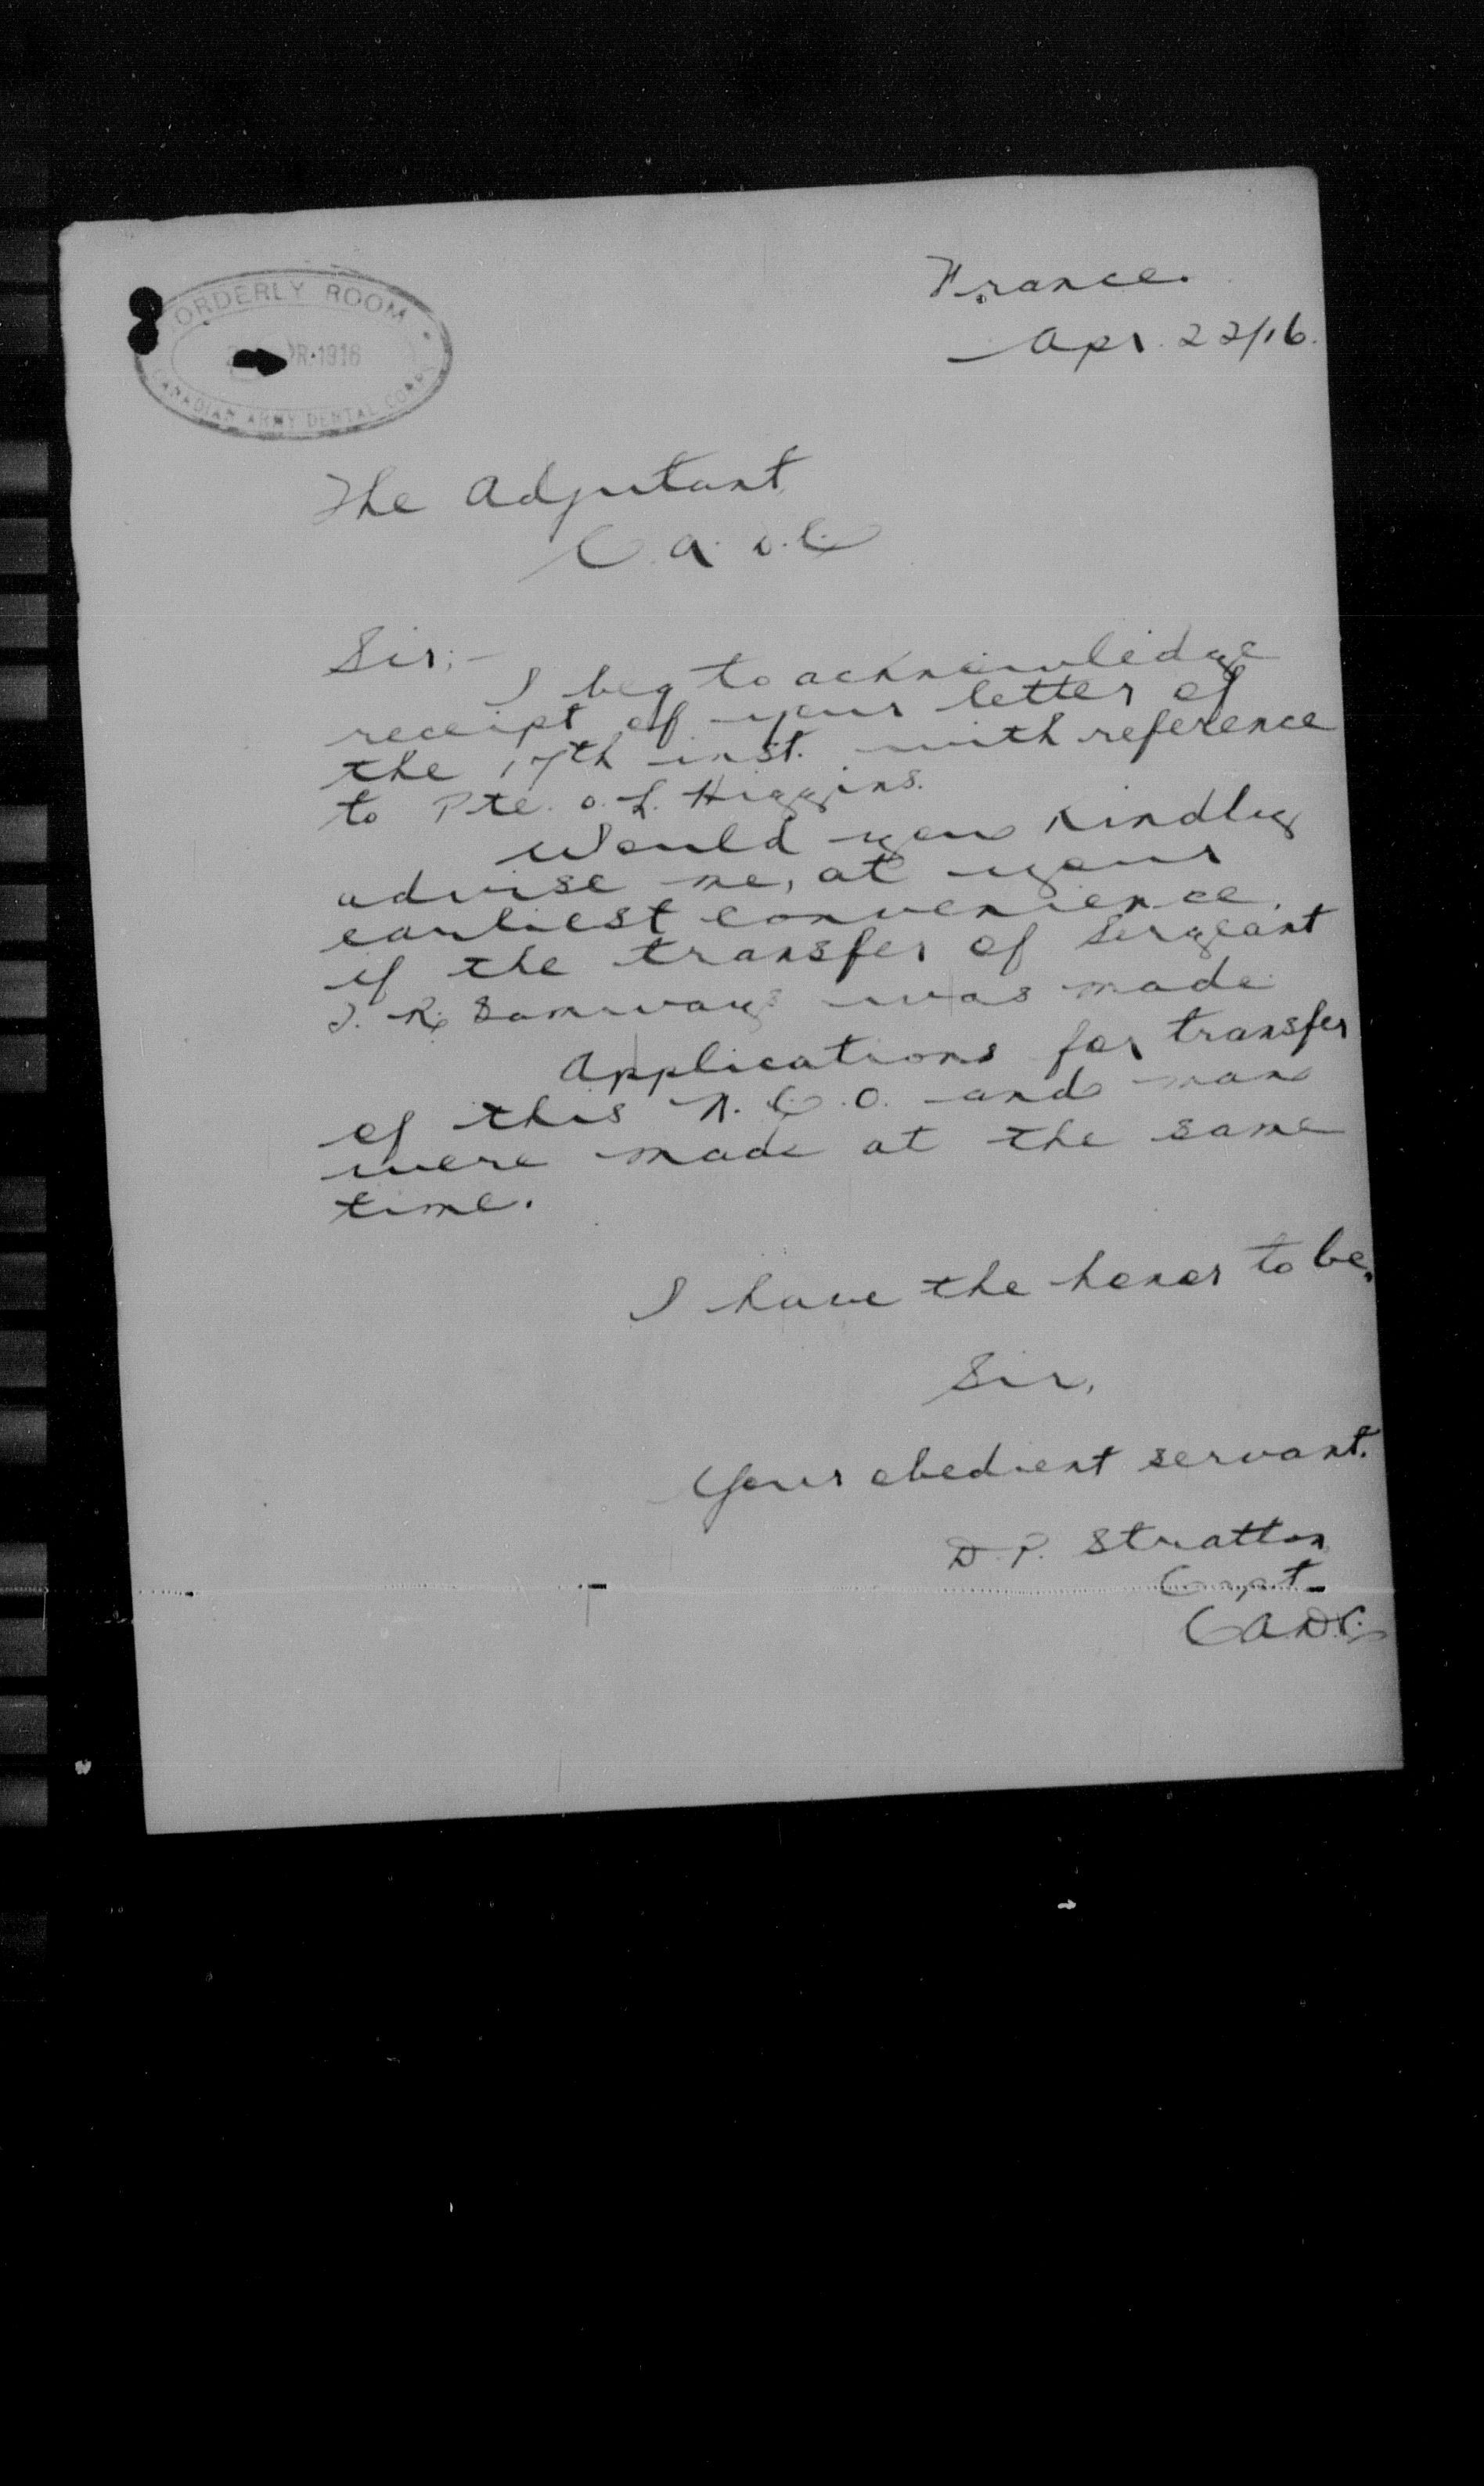 ORDERLY ROOM
APR. 1916
CANADIAN ARMY DENTAL CORPS
France.
Apr. 22/16.
The Adjutant
C. A. D. C.
Sir;-
I beg to acknowledge
receipt of your letter of
the 17th inst. with reference
to Pte. O. L. Higgins.
Would you kindly
advise me, at your
earliest convenience,
if the transfer of Sergeant
R. Samways was made
Applications for transfer
of this N. C. O. and man
were made at the same
time.
I have the honor to be,
Sir,
Your obedient servant.
D. P. Stratton
Capt
CADC.